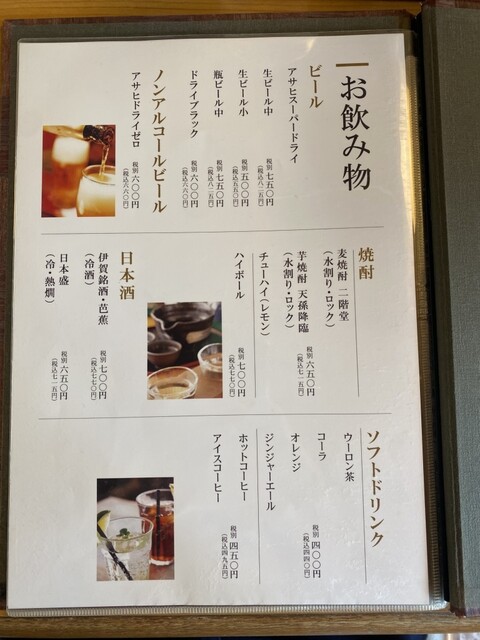 お飲み物
ビール
アサヒスーパードライ
生ビール中
税別 七五〇円
(税込八二五円)
生ビール小
税別 五〇〇円
(税込五五〇円)
瓶ビール中
税別 七五〇円
(税込八二五円)
ドライブラック
税別 六〇〇円
(税込六六〇円)
ノンアルコールビール
アサヒドライゼロ
税別 六〇〇円
(税込六六〇円)
焼酎
麦焼酎 二階堂
(水割り・ロック)
芋焼酎 天孫降臨
(水割り・ロック)
税別 六五〇円
(税込七一五円)
チューハイ(レモン)
ハイボール
税別 七〇〇円
(税込七七〇円)
日本酒
伊賀銘酒・芭蕉
(冷酒)
税別 七〇〇円
(税込七七〇円)
日本盛
(冷・熱燗)
税別 六五〇円
(税込七一五円)
ソフトドリンク
ウーロン茶
コーラ
オレンジ
ジンジャーエール
税別 四〇〇円
(税込四四〇円)
ホットコーヒー
アイスコーヒー
税別 四五〇円
(税込四九五円)